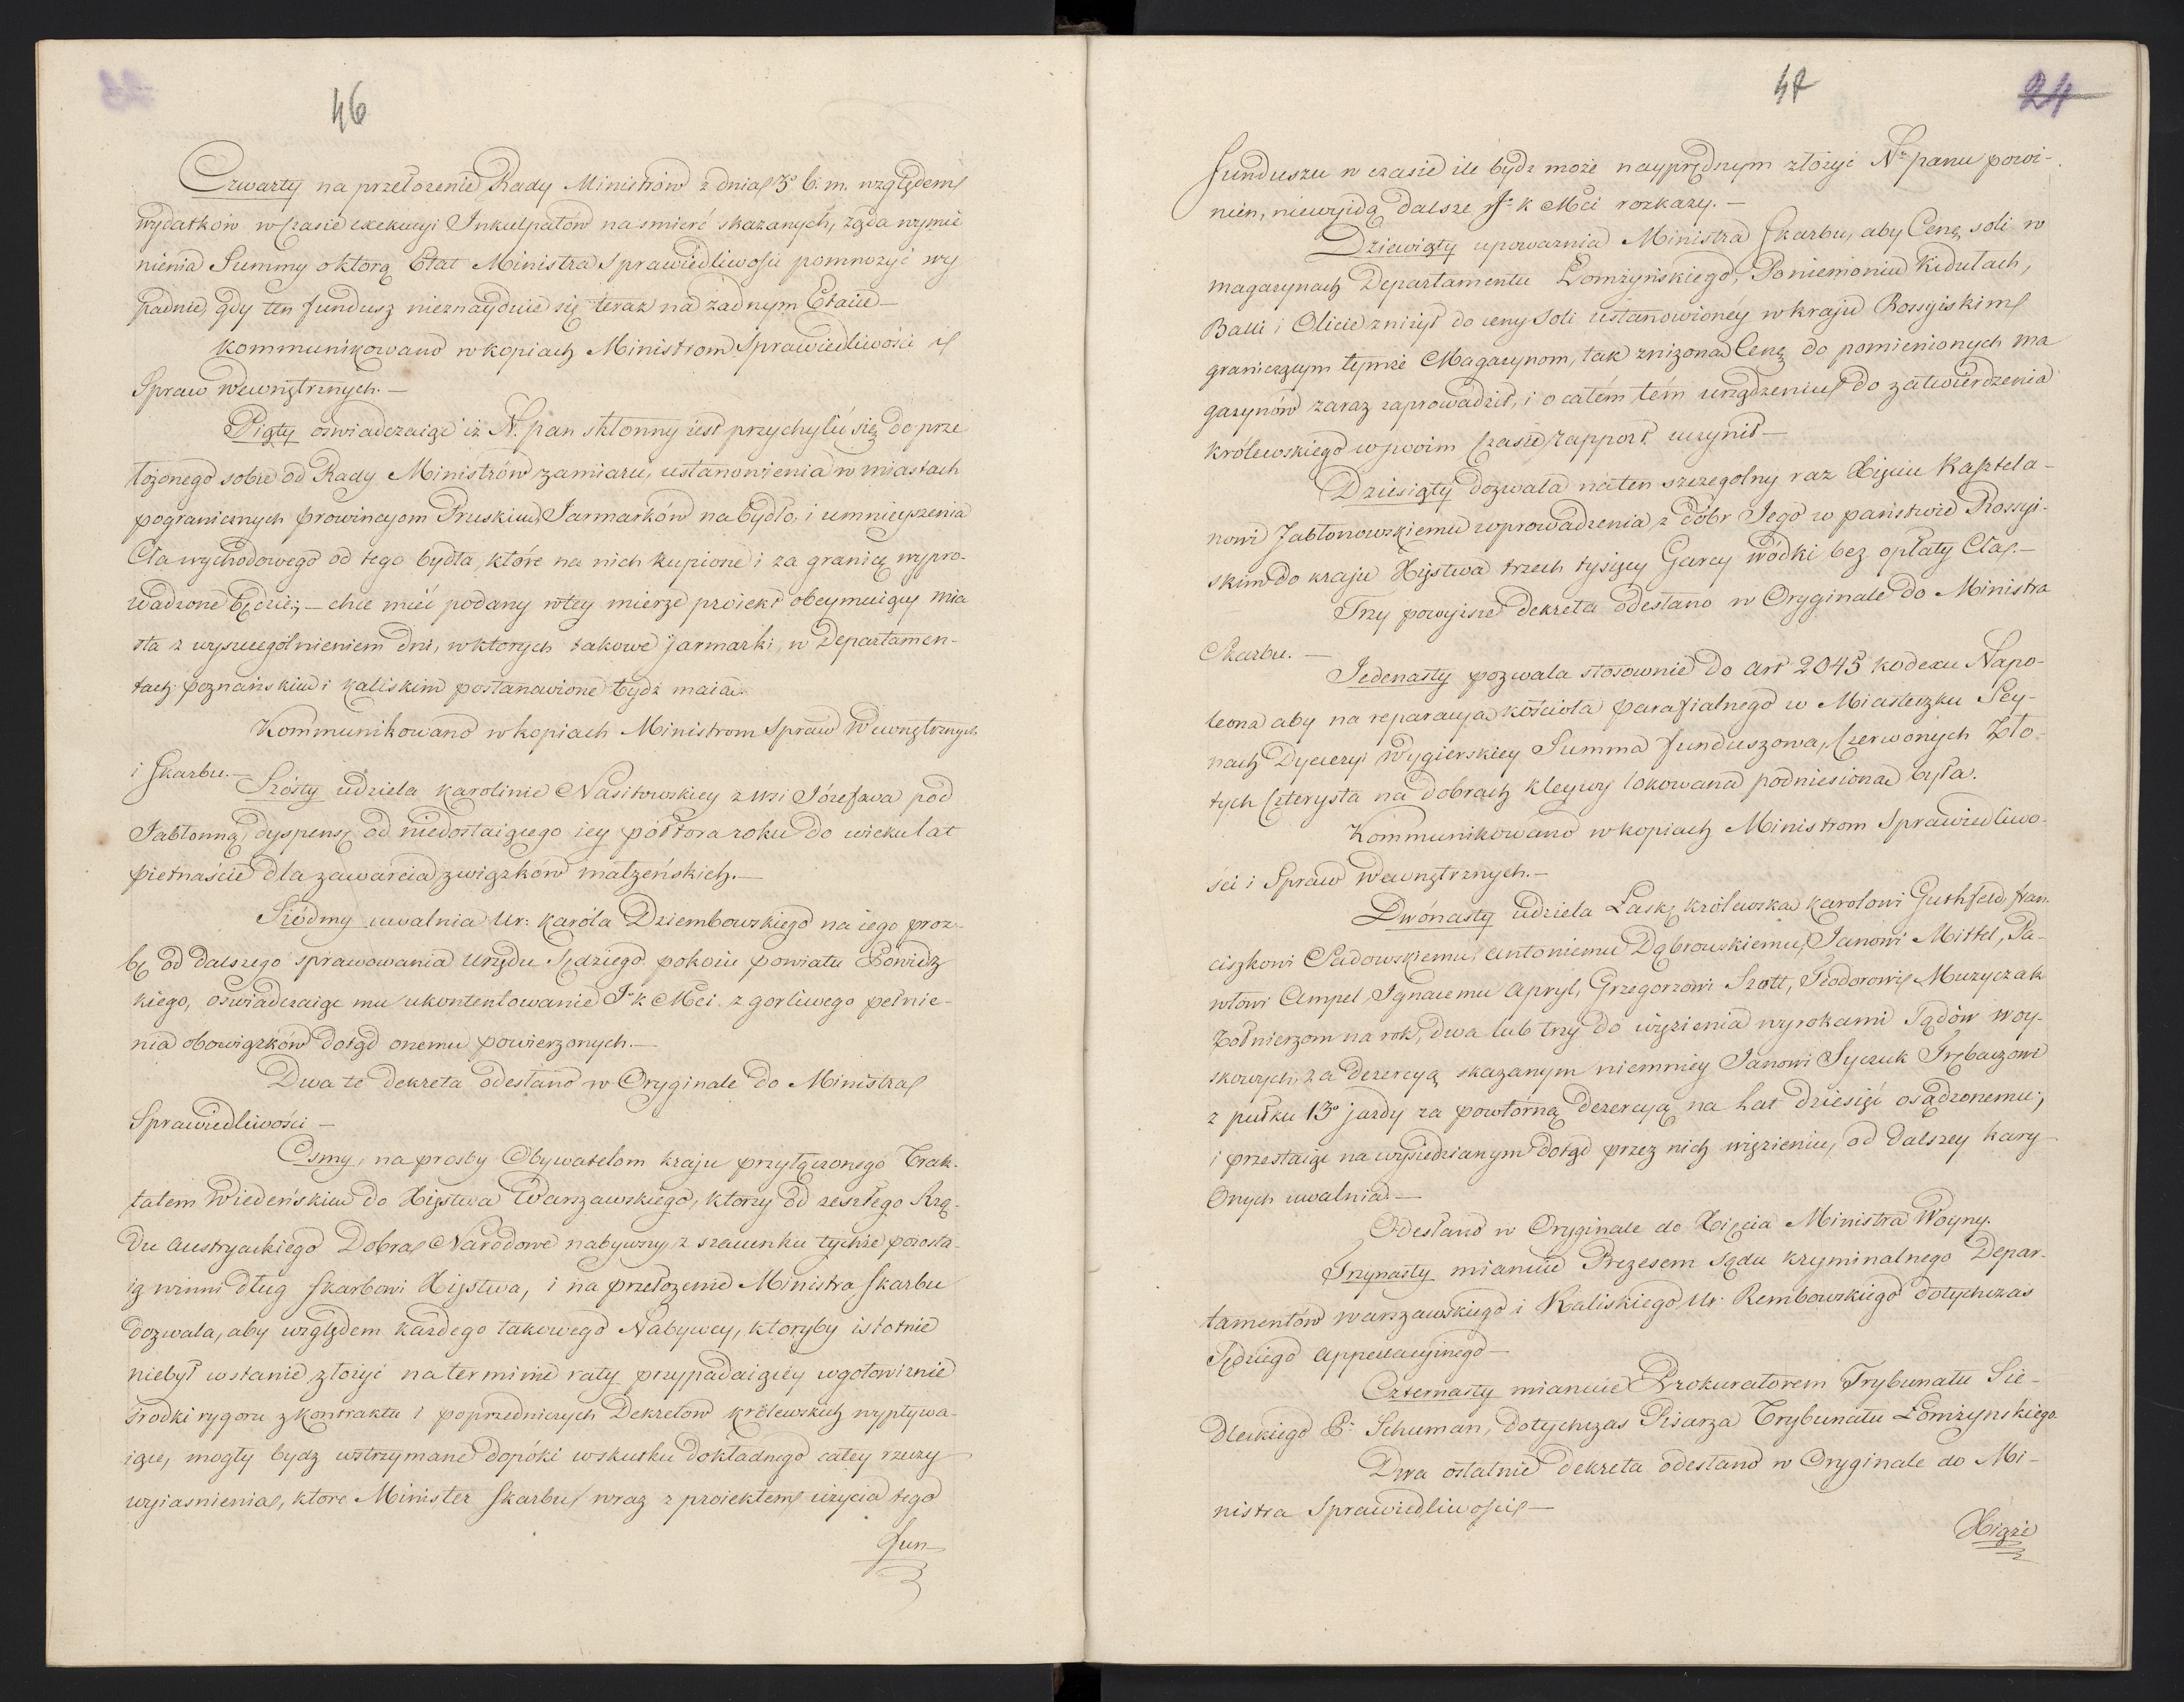 46
Czwarty na przełożenie Rady Ministrów z dnia 3º b. m. względem
wydatków w czasie exekucyi Inkulpatów na smierć skazanych, żąda wymie
nienia Summy o ktorą Etat Ministra Sprawiedliwości pomnożyć wy
padnie, gdy ten fundusz nieznayduie się teraz na żadnym Etacie —
Kommunikowano w kopiach Ministrom Sprawiedliwości i
Spraw Wewnętrznych. —
Piąty oswiadczaiąc iż N. pan skłonny iest przychylić się do prze
łożonego sobie od Rady Ministrów zamiaru, ustanowienia w miastach
pogranicznych prowincyom Pruskim Jarmarków na bydło, i umnieyszenia
Cła wychodowego od tego bydła, które na nich kupione i za granicę wypro-
wadzone będzie; — chce mieć podany w tey mierze proiekt obeymuiący mia
sta z wyszczegolnieniem dni, w ktorych takowe jarmarki, w Departamen-
tach poznańskim i Kaliskim postanowione bydź maią.
Kommunikowano w kopiach Ministrom Spraw Wewnętrznych
i Skarbu. —
Szósty udziela Karolinie Nasiłowskiey z wsi Józefawa pod
Jabłonną, dyspensę od niedostaiącego iey półtora roku do wieku lat
pietnaście dla zawarcia związków małżeńskich. —
Siódmy uwalnia Ur: Karóla Dziembowskiego na iego proz-
bę od dalszego sprawowania Urzędu Sędziego pokoiu powiatu Powidz
kiego, oświadczaiąc mu ukontentowanie J. K Mci z gorliwego pełnie-
nia obowiązków dotąd onemu powierzonych. —
Dwa te dekreta odesłano w Oryginale do Ministra
Sprawiedliwości —
Osmy, na prosby Obywatelom kraju przyłączonego Trak-
tatem Wiedeńskim do Xięstwa Warszawskiego, ktorzy od zeszłego Rzą-
du Austryackiego Dobra Narodowe nabywszy, z szacunku tychże pozosta-
ią winni dług Skarbowi Xięstwa, i na przełożenie Ministra Skarbu
dozwala, aby względem każdego takowego Nabywcy, ktoryby istotnie
niebył w stanie złożyć na terminie raty przypadaiącey w gotowiznie
środki rygoru z kontraktu i poprzedniczych Dekretow królewskich wypływa-
iące, mogły bydz wstrzymane dopóki w skutku dokładnego całey rzeczy
wyiasnienia, ktore Minister Skarbu wraz z proiektem użycia tego
Fun-
47
24
funduszu w czasie ile bydz może nayprędszym złożyć N. panu powi-
nien, niewyidą dalsze J. K Mci rozkazy. —
Dziewiąty upoważnia Ministra Skarbu, aby Cenę soli w
magazynach Departamentu Łomżyńskiego, Poniemoniu Kidulach,
Balli i Olicie zniżył do ceny soli ustanowionéy w kraju Rossyiskim
graniczącym tymże Magazynom, tak zniżoną Cenę do pomienionych ma
gazynów zaraz zaprowadził, i o całém tém urządzeniu do zatwierdzenia
królewskiego w swoim czasie rapport uczynił —
Dziesiąty dozwala na ten szczegolny raz Xięciu Kasztela-
nowi Jabłonowskiemu wprowadzenia z dóbr Jego w państwie Rossyi-
skim do kraju Xięstwa trzech tysięcy Garcy wódki bez opłaty Cła. —
Trzy powyisze dekreta odesłano w Oryginale do Ministra
Skarbu. —
Jedenasty pozwala stosownie do art 2045 kodexu Napo-
leona aby na reparacyą kościoła parafialnego w Miasteczku Sey-
nach Dyecezyi Wygierskiey Summa funduszowa, czerwonych Zło-
tych czterysta na dobrach Kleywy lokowana podniesioną była.
Kommunikowano w kopiach Ministrom Sprawiedliwo-
ści i Spraw Wewnętrznych. —
Dwónasty udziela Łaskę królewską Karolowi Guthfeld, Fran-
ciszkowi Sadowskiemu, Antoniemu Dąbrowskiemu, Janowi Mittel, Pa-
włowi Ampel, Ignacemu Apryl, Grzegorzowi Szott, Teodorowi Muzyczak
Żołnierzom na rok, dwa lub trzy do więzienia wyrokami Sądów woy-
skowych, za dezercyą skazanym niemniéy Janowi Syczuk Trębaczowi
z pułku 13º jazdy za powtórną dezercyą na lat dziesięć osądzonemu;
i przestaiąc na wysiedzianym dotąd przez nich więzieniu, od dalszey kary
Onych uwalnia. —
Odesłano w Oryginale do Xięcia Ministra Woyny.
Trzynasty mianuie Prezesem Sądu kryminalnego Depar-
tamentów warszawskiego i Kaliskiego Ur: Rembowskiego dotychczas
Sędziego Appellacyinego —
Czternasty mianuie Prokuratorem Trybunału Sie-
dleckiego P. Schuman, dotychczas Pisarza Trybunału Łomżynskiego.
Dwa ostatnie dekreta odesłano w Oryginale do Mi-
nistra Sprawiedliwości —
Xiąże